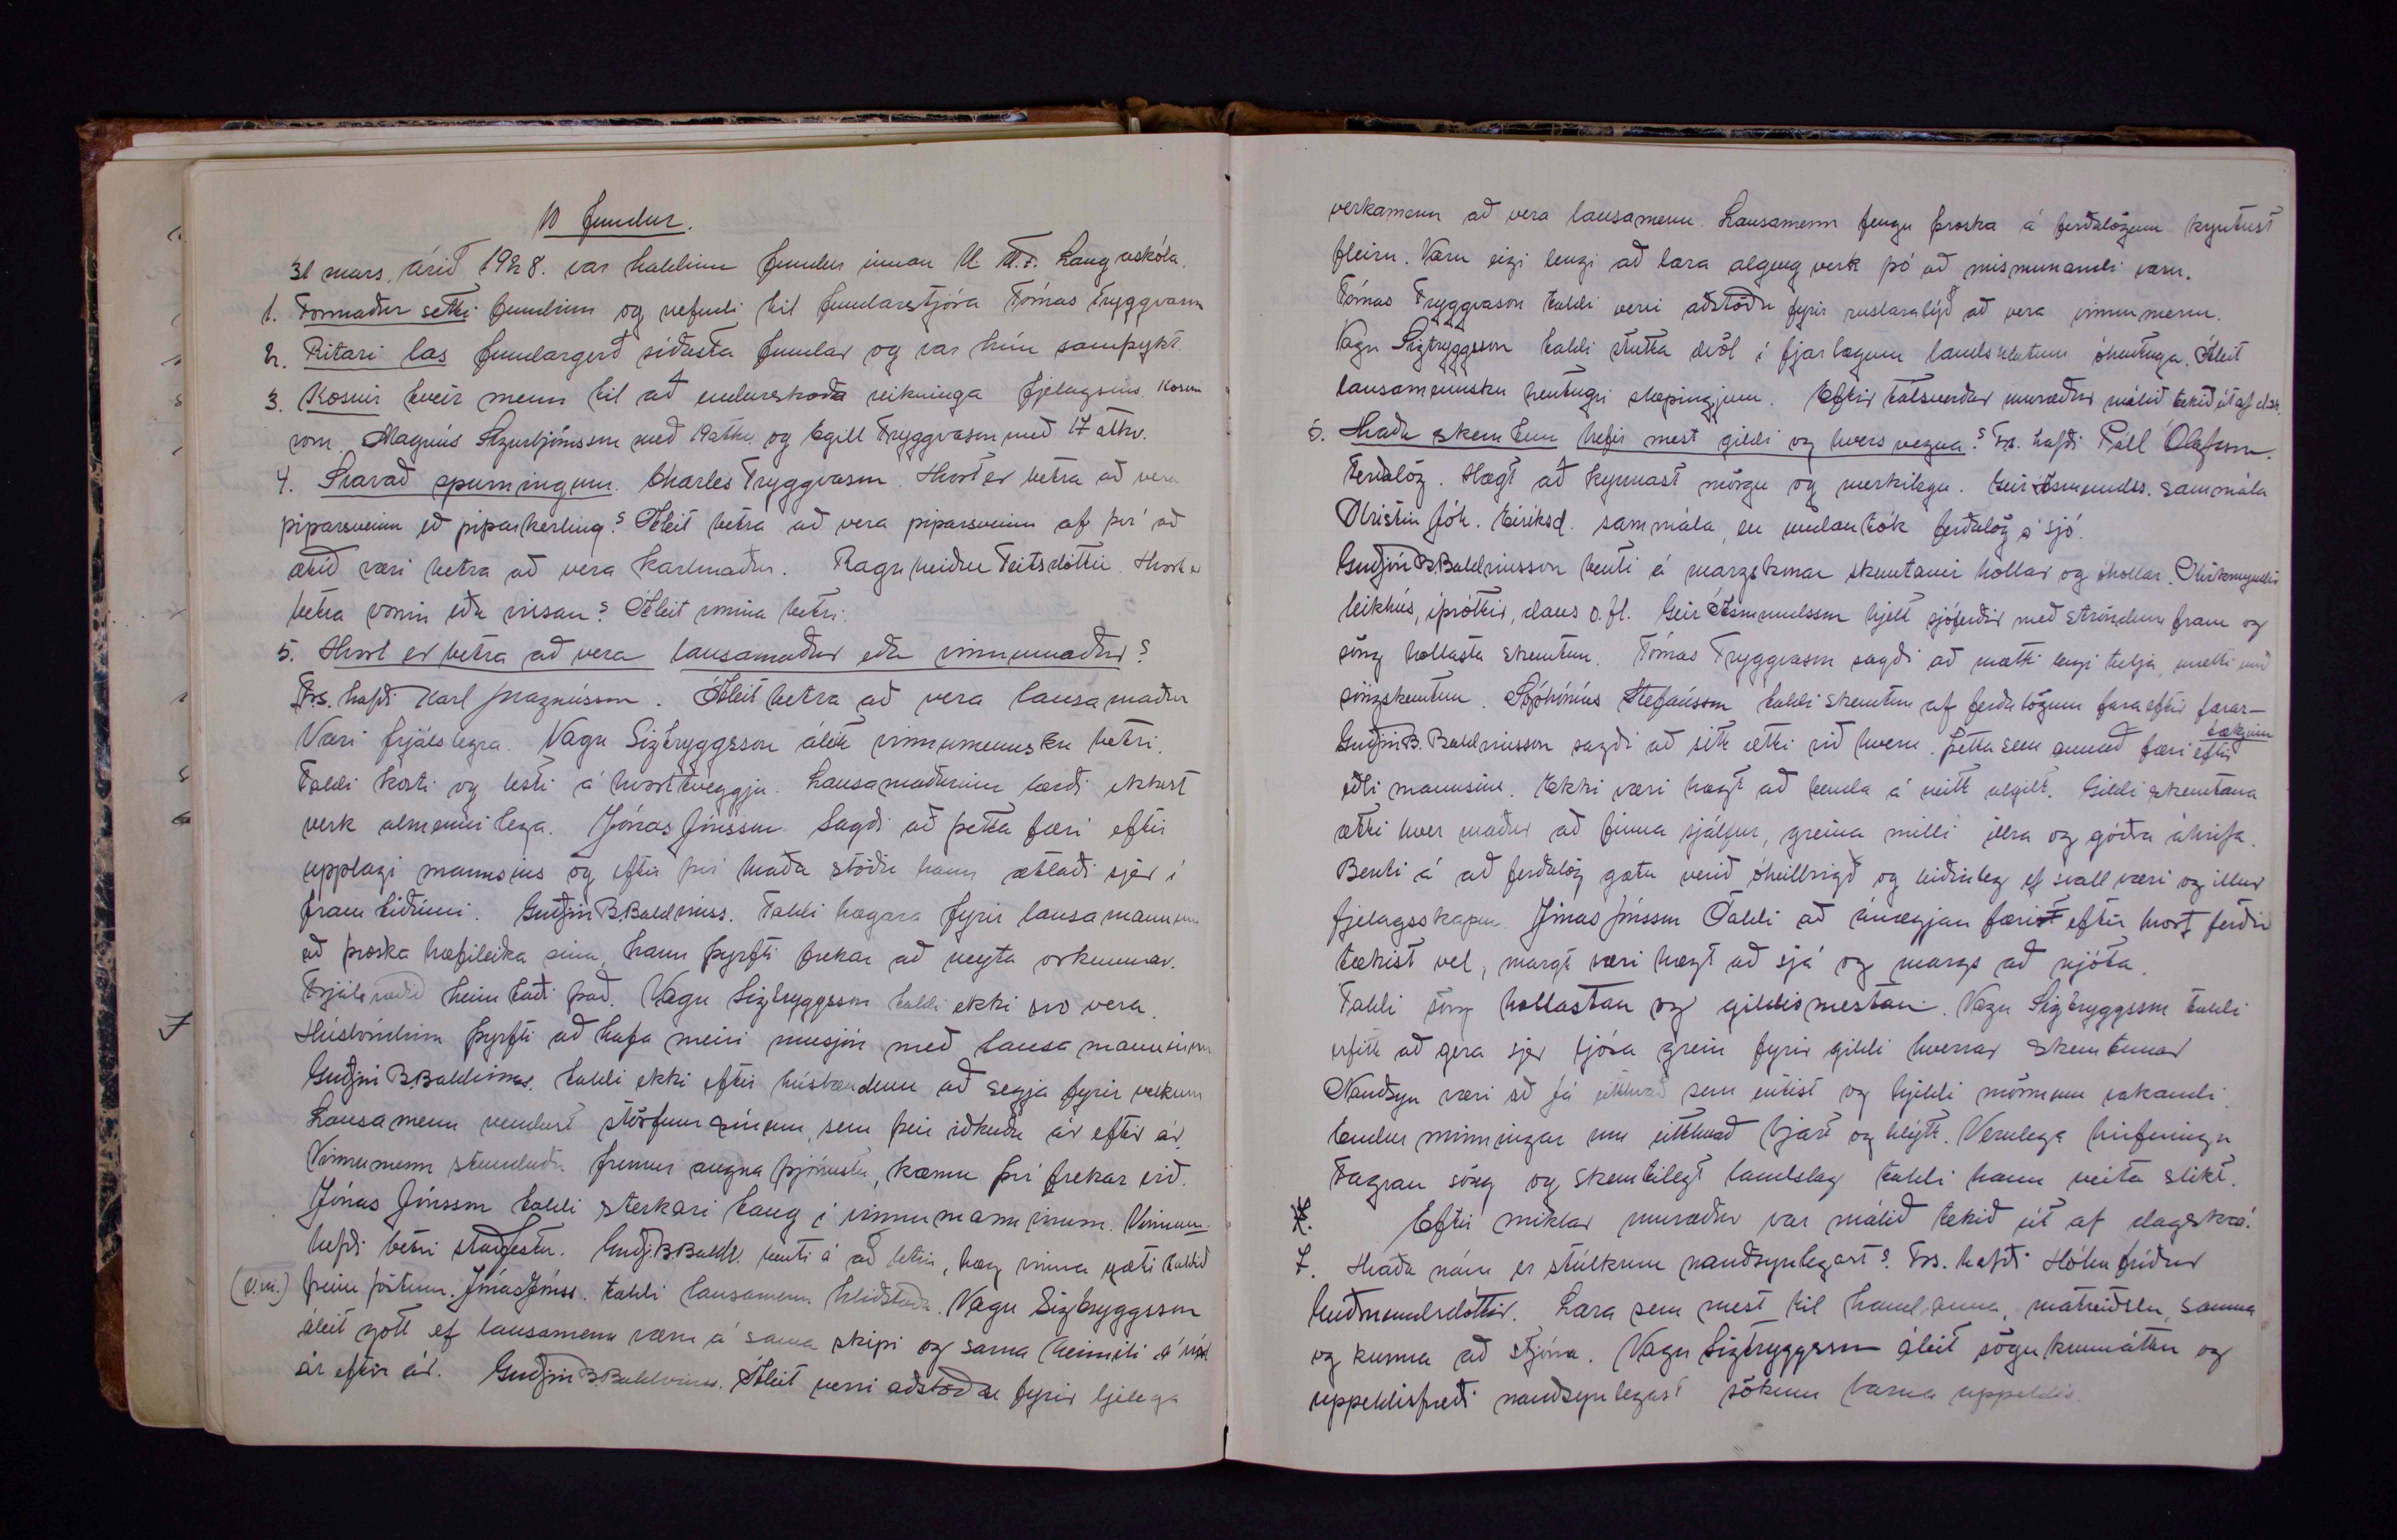 10 fundur.
31 mars, árið 1928. var haldinn fundur innan U. M.F. Laugaskóla.
1. Formaður setti fundinn og nefndi til fundarstjóra Tómas Tryggvason
2. Ritari las fundargerð síðasta fundar og var hún samþykt.
3. Kosnir tveir menn til að endurskoða reikninga fjelagsins. Kosnir
vorn Magnús Sigurbjörnsson með 19 atkv. og Egill Tryggvason með 17 atkv.
4. Svarað spurningum. Charles Tryggvason. Hvort er betra að vera
piparsveinn eð piparkerling? Áleit betra að vera piparsveinn af því að
ætíð væri betra að vera karlmaður. Ragnheiður Teitsdóttir. Hvort er
betra vonin eða vissan? Áleit vonina betri.
5. Hvort er betra að vera lausamaður eða vinnumaður?
Frs. hafði Karl Magnússon. Áleit betra að vera lausamaður
Væri frjálslegra. Vagn Sigtryggsson áleit vinnumennsku betri.
Taldi kosti og lesti á hvorttveggju. Lausamaðurinn lærði ekkert
verk almennilega. Jónas Jónsson Sagði að þetta færi eftir
upplagi mannsins og eftir því hvaða stöðu hann ætlaði sjer í
framtíðinni. Guðjón B. Baldvinss. Taldi hægara fyrir lausamanninn
að þroska hæfileika sína, hann þyrfti frekar að neyta orkunnar.
Frjálsræðið heimtaði það. Vagn Sigtryggsson taldi ekki svo vera.
Húsbóndinn þyrfti að hafa meiri umsjón með lausamanninum
Guðjón B. Baldvinss. taldi ekki eftir húsbændum að segja fyrir verkum
Lausamenn vendust störfum sínum, sem þeir iðkuðu ár eftir ár
Vinnumenn stunduðu fremur augnaþjónustu, kæmu því frekar við.
Jónas Jónsson taldi sterkari taug í vinnumanninum. Vinnum.
hefði betri staðfestu. Guðj. B. Baldv. benti á að letin, hæg vinna gæti haldið
(v.m.) þeim föstum. Jónas Jónss. taldi lausamenn hliðstæða. Vagn Sigtryggsson
áleit gott ef lausamenn væru á sama skipi og sama heimili
ár eftir ár. Guðjón B. Baldvinss. Áleit verri aðstöðu fyrir ljelega
verkamenn að vera lausamenn. Lausamenn fengu þroska á ferðalögum kyntust
fleiru. Væru eigi lengi að læra algeng verk þó að mismunandi væru.
Tómas Tryggvason taldi verri aðstöðu fyrir ruslaralýð að vera vinnumenn.
Vagn Sigtryggsson taldi stutta dvöl í fjarlægum landshlutum óhentuga. Áleit
lausamennsku hentugri slæpingjum. Eftir talsverðar umræður málið tekið út af dsk.
6. Hvaða skemtun hefir mest gildi og hvers vegna? Frs. hafði Páll Ólafsson.
Ferðalög. Hægt að kynnast mörgu og merkilegu. Geir Ásmundss. sammála
Kristín Jóh. Eiríksd. sammála, en undantók ferðalög á sjó.
Guðjón B. Baldvinsson benti á margskonar skemtanir hollar og óhollar. Kvikmyndir
leikhús, íþróttir, dans o.fl. Geir Ásmundsson hjelt sjóferðir með ströndum fram og
söng hollasta skemtun. Tómas Tryggvason sagði að mætti lengi telja, mælti með
söngskemtun. Sophónías Stefánsson taldi skemtun af ferðalögum fara eftir farar-
tækjum
Guðjón B. Baldvinsson sagði að sitt ætti við hvern. Þetta sem annað færi eftir
eðli mannsins. Ekki væri hægt að benda á neitt algilt. Gildi skemtana
ætti hver maður að finna sjálfur, greina milli illra og góðra áhrifa.
Benti á að ferðalög gætu verið óheilbrigð og leiðinleg ef svall væri og illur
fjelagsskapur. Jónas Jónsson Taldi að ánægjan færi eftir hvort ferðin
tækist vel, margt væri hægt að sjá og margs að njóta.
Taldi söng hollastan og gildismestan. Vagn Sigtryggsson taldi
erfitt að gera sjer ljósa grein fyrir gildi hverrar skemtunar
Nauðsyn væri að fá eitthvað sem entist og hjeldi mönnum vakandi.
Endurminningar um eitthvað bjart og hlýtt. Verulega hrifningu
Fagran söng og skemtilegt landslag taldi hann veita slíkt.
Eftir miklar umræður var málið tekið út af dagskrá.
7. Hvaða nám er stúlkum nauðsynlegast? Frs. hafði Hólmfríður
Guðmundsdóttir. Læra sem mest til handanna, matreiðslu, sauma
og kunna að stjórna. Vagn Sigtryggsson áleit sögukunnáttu og
uppeldisfræði nauðsynlegast sökum barna uppeldis.